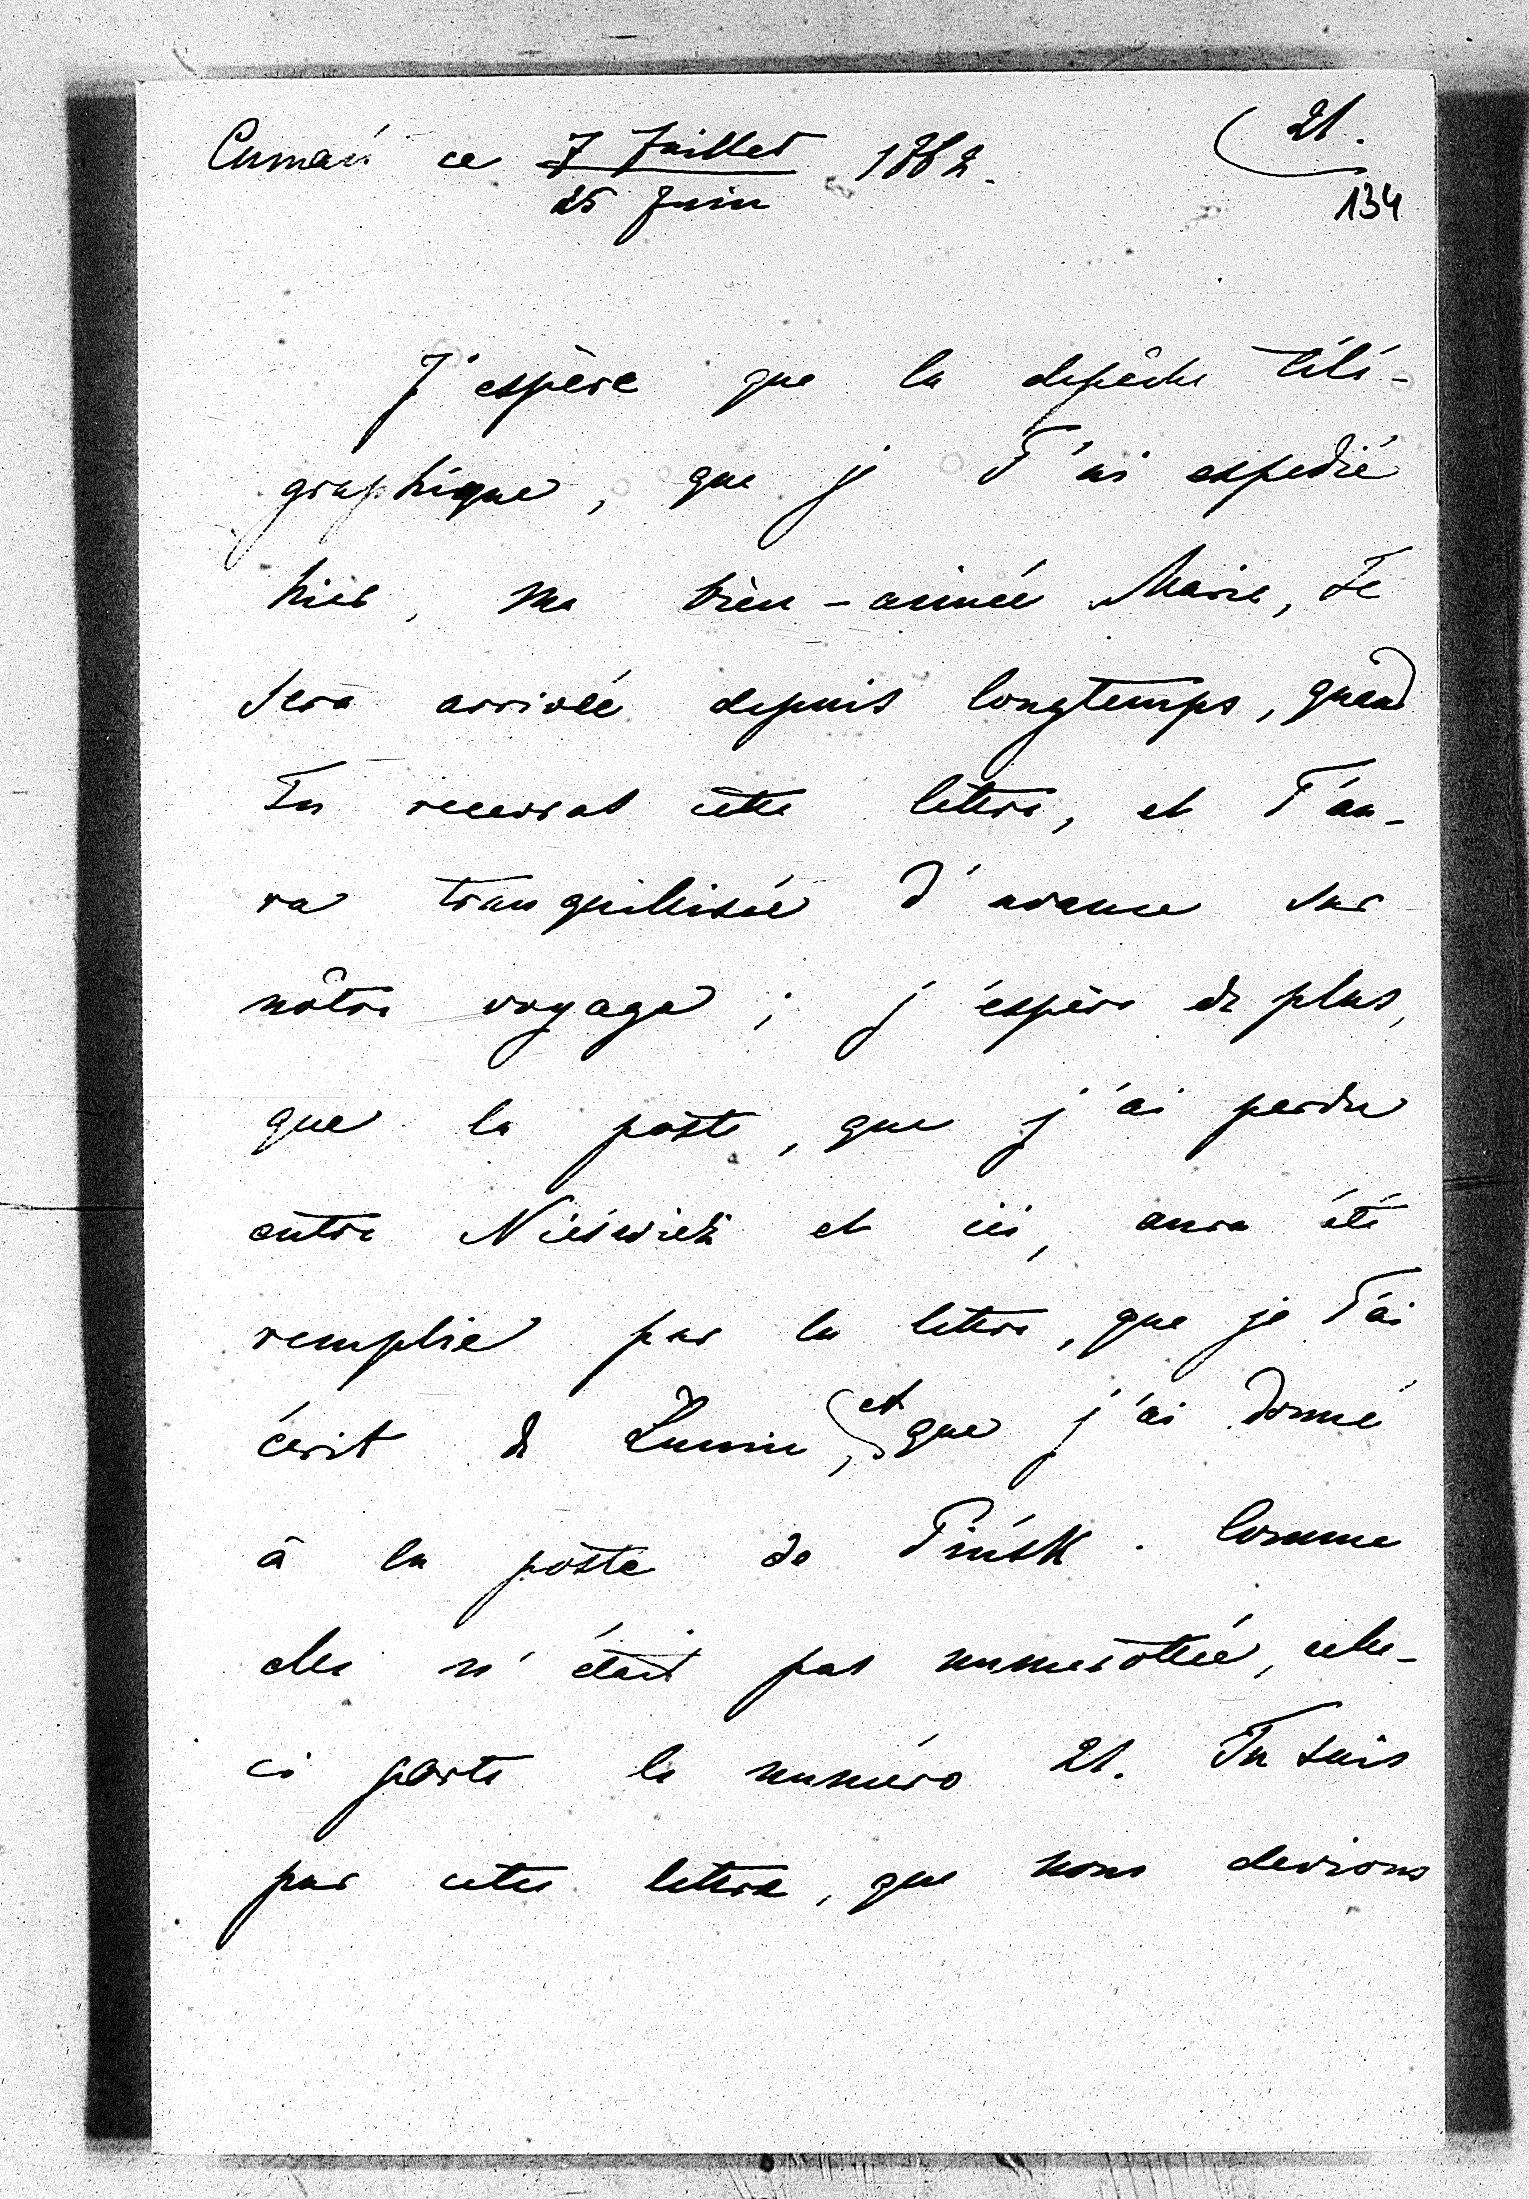 Cumań ce 7 Juillet 1882. 21.
25 Juin 134
J'espère que la depêche télé-
graphique, que je T'ai expedié
hier, ma bien-aimée Marie, Te
sera arrivée depuis longtemps, quand
Tu recevras cette lettre, et T'au-
ra tranquillisée d'avance sur
nôtre voyage ; j'espère de plus,
que la poste, que j'ai perdu
entre Nieśwież et ici, aura été
remplie par la lettre, que je T'ai
écrit de Łunin, et que j'ai donné
à la poste de Pińsk. Comme
elle n'était pas numerôtée, celle-
ci porte le numéro 21. Tu sais
par cette lettre, que nous devions